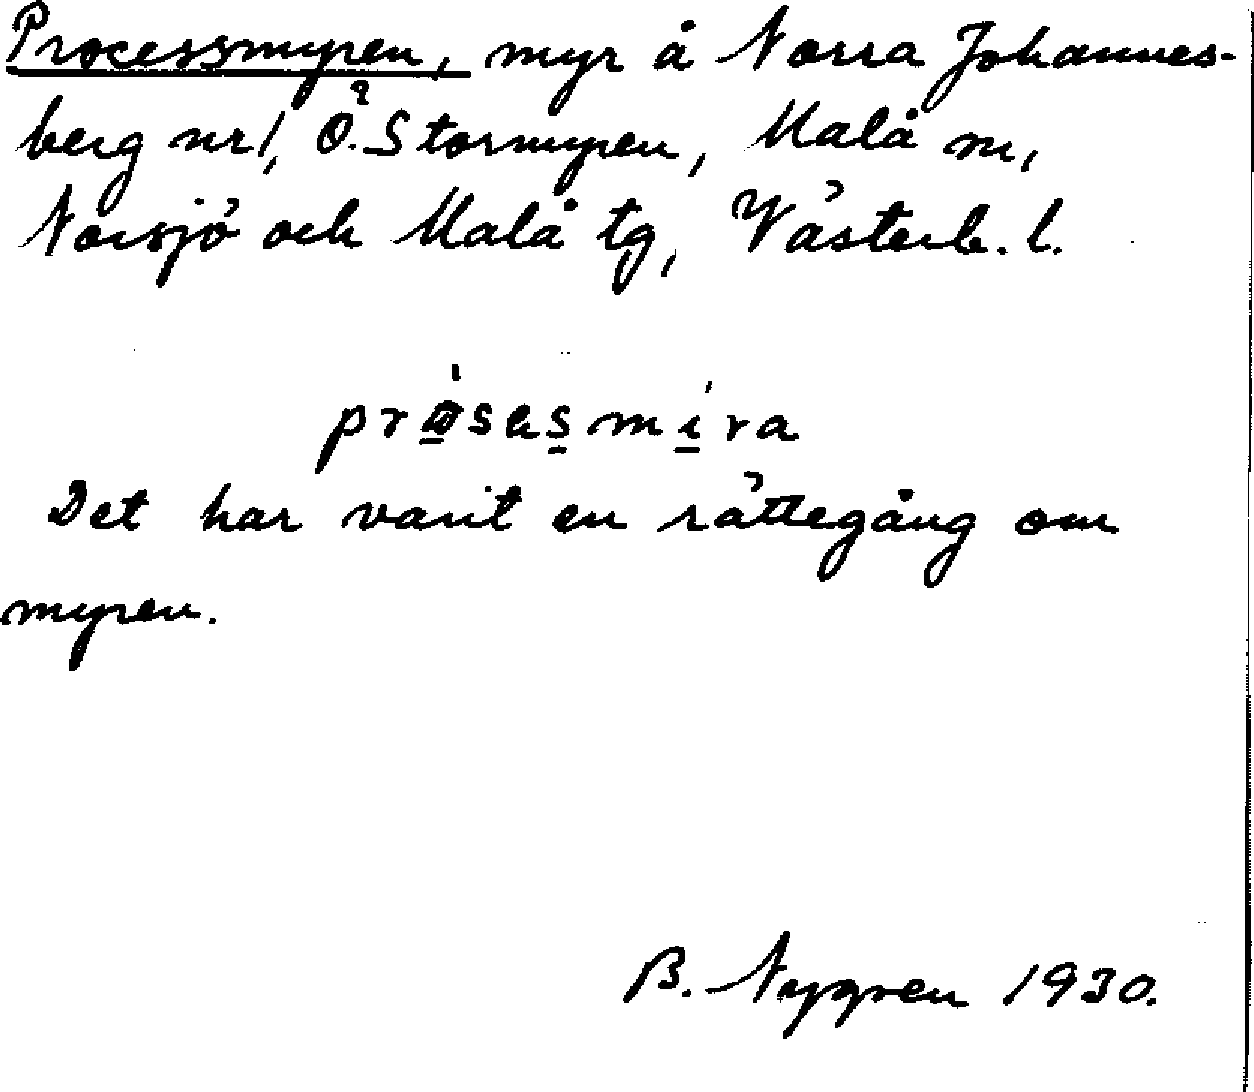 Processmyren, myr å Norra Johannes-
berg nr 1, Ö. Stormyren, Malå sn,
Norsjö och Malå tg, Västerb. l.
prosesmira
Det har varit en rättegång om
myren.
B. Nygren 1930.